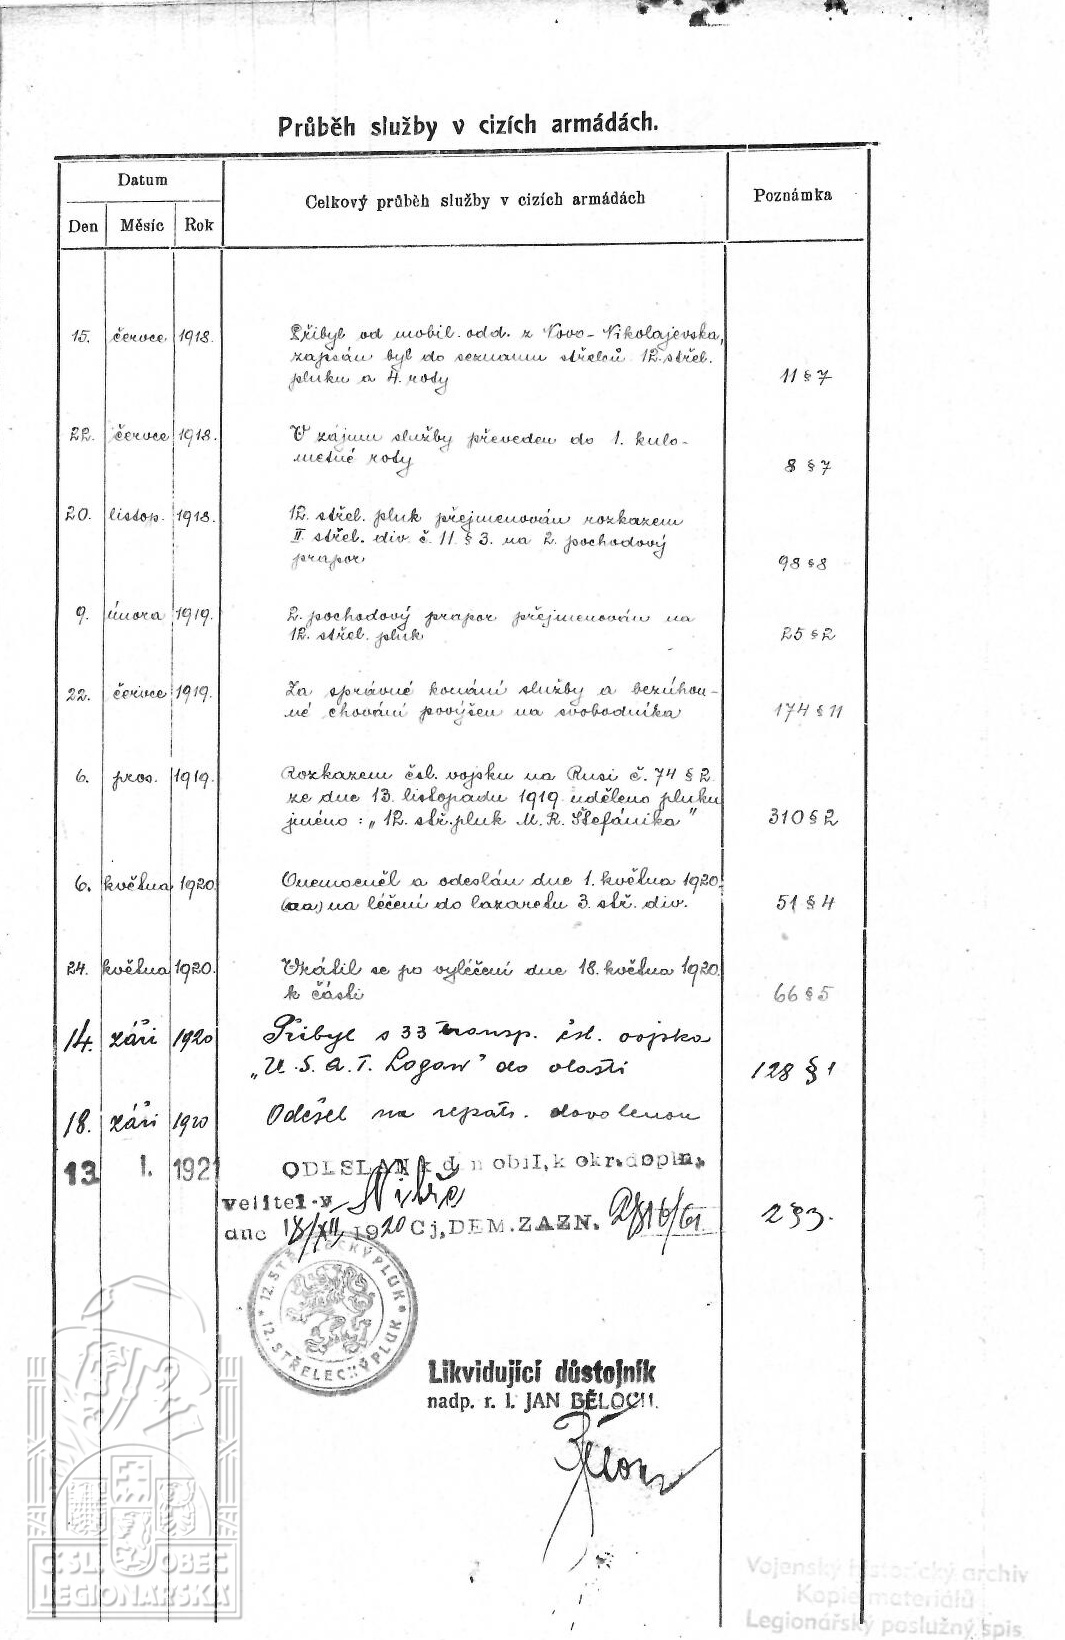 Průběh služby v cizích armádách.
Datum
Celkový průběh služby v cizích armádách
Poznámka
Den Měsíc Rok
15. červce 1918. Přibyl od mobil. odd. z Novo-Nikolajevska,
zapsán byl do seznamu střelců 12. střel.
pluku a 4. roty 11 § 7
22. červce 1918. V zájmu služby převeden do 1. kulo-
metné roty 8 § 7
20. listop. 1918. 12. střel. pluk přejmenován rozkazem
II. střel. div. č. 11 § 3. na 2. pochodový
prapor 98 § 8
9. února 1919. 2. pochodový prapor přejmenován na
12. střel. pluk 25 § 2
22. červce 1919. Za správné konání služby a bezúhon-
né chování povýšen na svobodníka 174 § 11
6. pros. 1919. Rozkazem čsl. vojsku na Rusi č. 74 § 2
ze dne 13. listopadu 1919 uděleno pluku
jméno: „12. stř. pluk M. R. Štefánika" 310 § 2
6. května 1920. Onemocněl a odeslán dne 1. května 1920.
na léčení do lazaretu 3. stř. div. 51 § 4
24. května 1920. Vrátil se po vyléčení dne 18. května 1920.
k části 66 § 5
14. září 1920 Přibyl s 33 transp. čsl. vojska
„U. S. A. T. Logan" do vlasti 128 § 1
18. září 1920 Odešel na repatr. dovolenou
13 I. 1921 ODESLÁN k d. mobil, k okr. dopln.
velitel. v Nitře
dne 18/XII 1920 Cj, DEM. ZAZN. 2 § 3.
* 12. STŘELECKÝ PLUK * 12. STŘELECKÝ PLUK
Likvidující důstojník
nadp. r. l. JAN BĚLOCH.
Č.SL. OBEC
LEGIONÁŘSKÁ
Vojenský historický archiv
Kopie materiálů
Legionářský poslužný spis